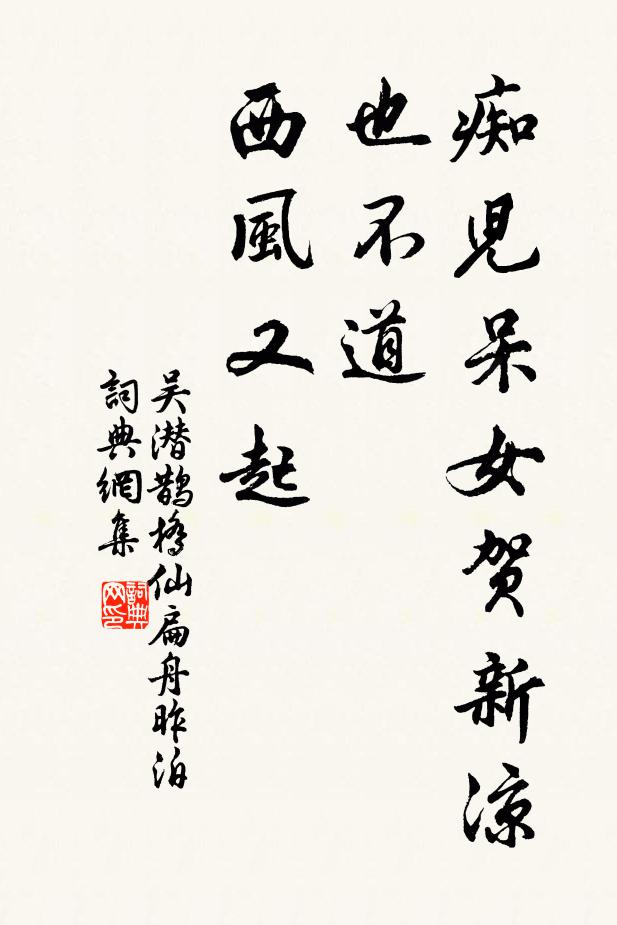 痴児呆女贺新凉
也不道
西風又起
吴潜鹊橋仙扁舟昨泊
詞典網集
詞典网印